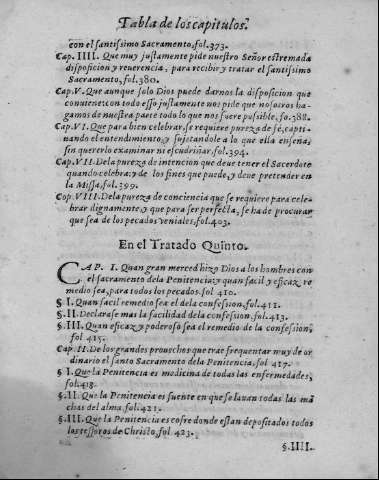 Tabla de los capitulos.
con el santissimo Sacramento, fol.373.
Cap. IIII. Que muy justamente pide nuestro Señor estremada
disposicion y reuerencia, para recibir y tratar el santissimo
Sacramento, fol.380.
Cap. V. Que aunque solo Dios puede darnos la disposicion que
conuiene: con todo esso justamente nos pide que nosotros ha-
gamos de nuestra parte todo lo que nos fuere possible, fo.388.
Cap. VI. Que para bien celebrar, se requiere pureza de fè, capti-
nando el entendimiento, y sujetandole a lo que ella enseña,
sin quererlo examinar ni escudriñar, fol.394.
Cap. VII. De la pureza de intencion que deue tener el Sacerdote
quando celebra: y de los fines que puede, y deue pretender en
la Missa, fol.399.
Cap. VIII. De la pureza de conciencia que se requiere para cele-
brar dignamente, y que para ser perfecta, se ha de procurar
que sea de los pecados veniales, fol.403.
En el Tratado Quinto.
CAP. I. Quan gran merced hizo Dios a los hombres con
el sacramento de la Penitencia, y quan facil y eficaz re
medio sea, para todos los pecados. fol 410.
§ I. Quan facil remedio sea el de la confession, fol.411.
§. II. Declarase mas la facilidad de la confession, fol.413.
§. III. Quan eficaz y poderoso sea el remedio de la confession,
fol 415.
Cap. II. De los grandes prouechos que trae frequentar muy de or
dinario el santo Sacramento de la Penitencia, fol.417.
§ I. Que la Penitencia es medicina de todas las enfermedades,
fol.418.
§. II. Que la Penitencia es fuente en que se lauan todas las mã
chas del alma, fol.421.
§. III. Que la Penitencia es cofre donde estan depositados todos
los tessoros de Christo, fol. 423.
§. IIII.